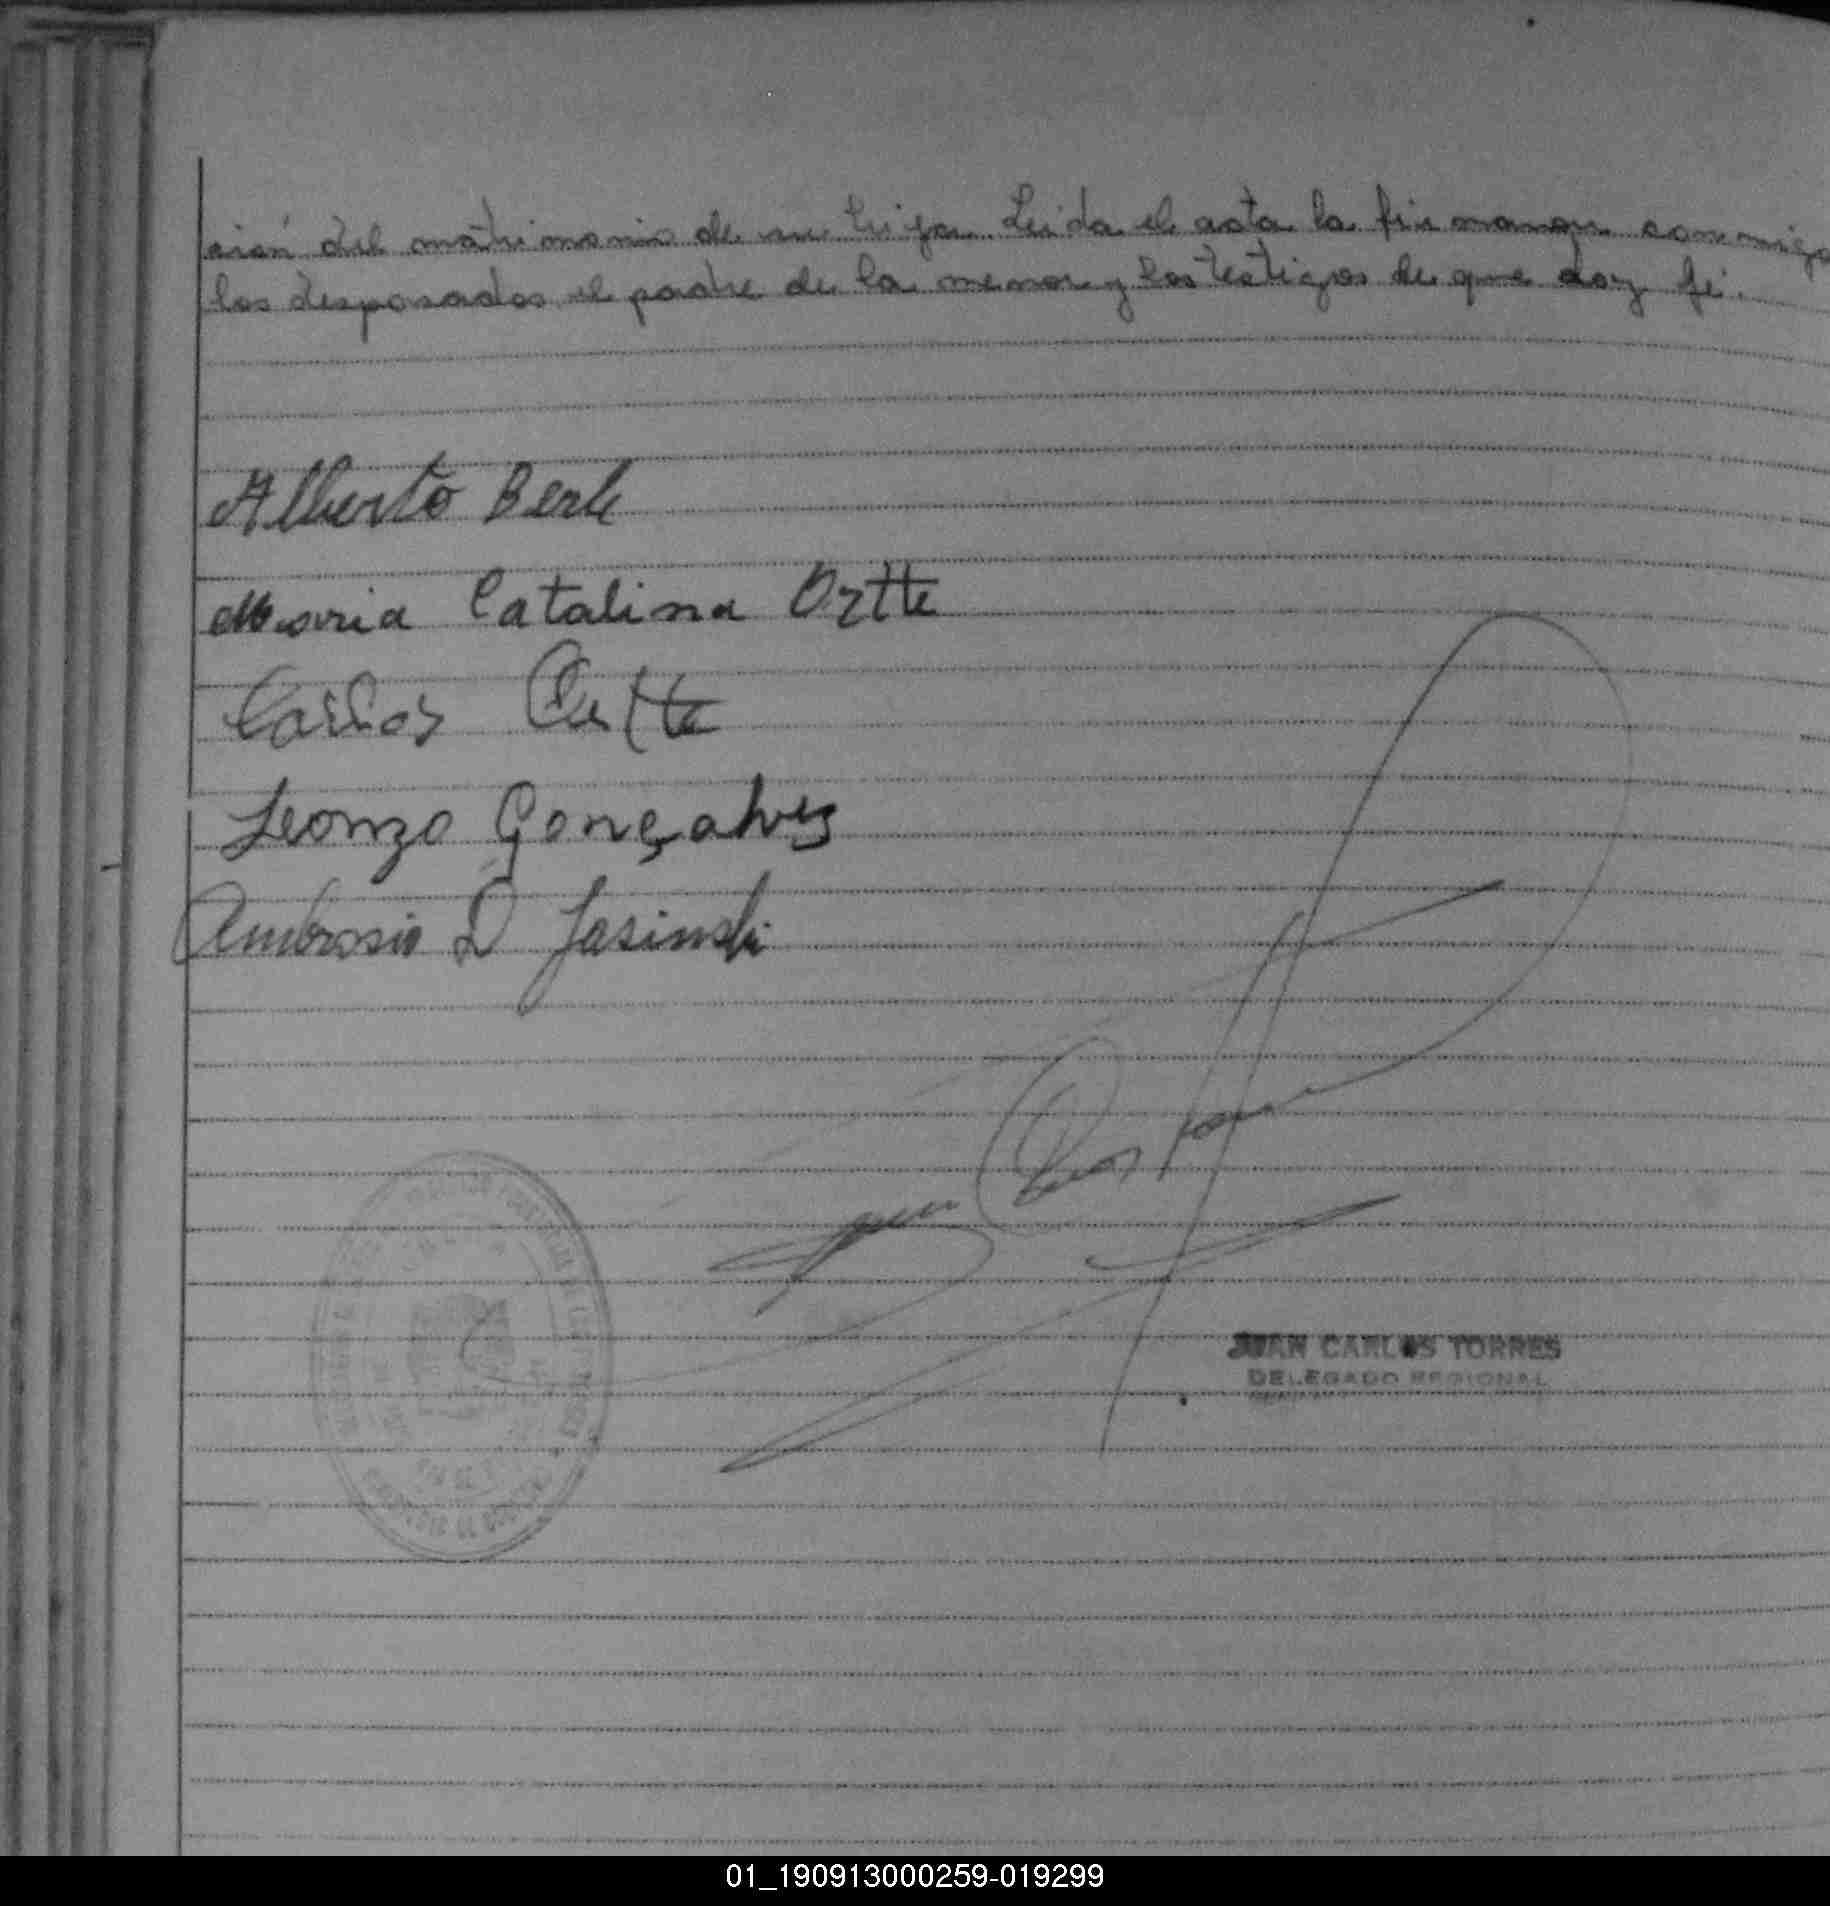 ción del matrimonio de su hija. Leida el acta la firmaron conmigo
los desposados el padre de la menor y los testigos de que doy fé.
Alberto Berk
Maria Catalina Ortt
Carlos Ortt
Leonzo Gonçalves
Ambrosio D Jasinski
JUAN CARLOS TORRES
DELEGADO REGIONAL
01_190913000259-019299